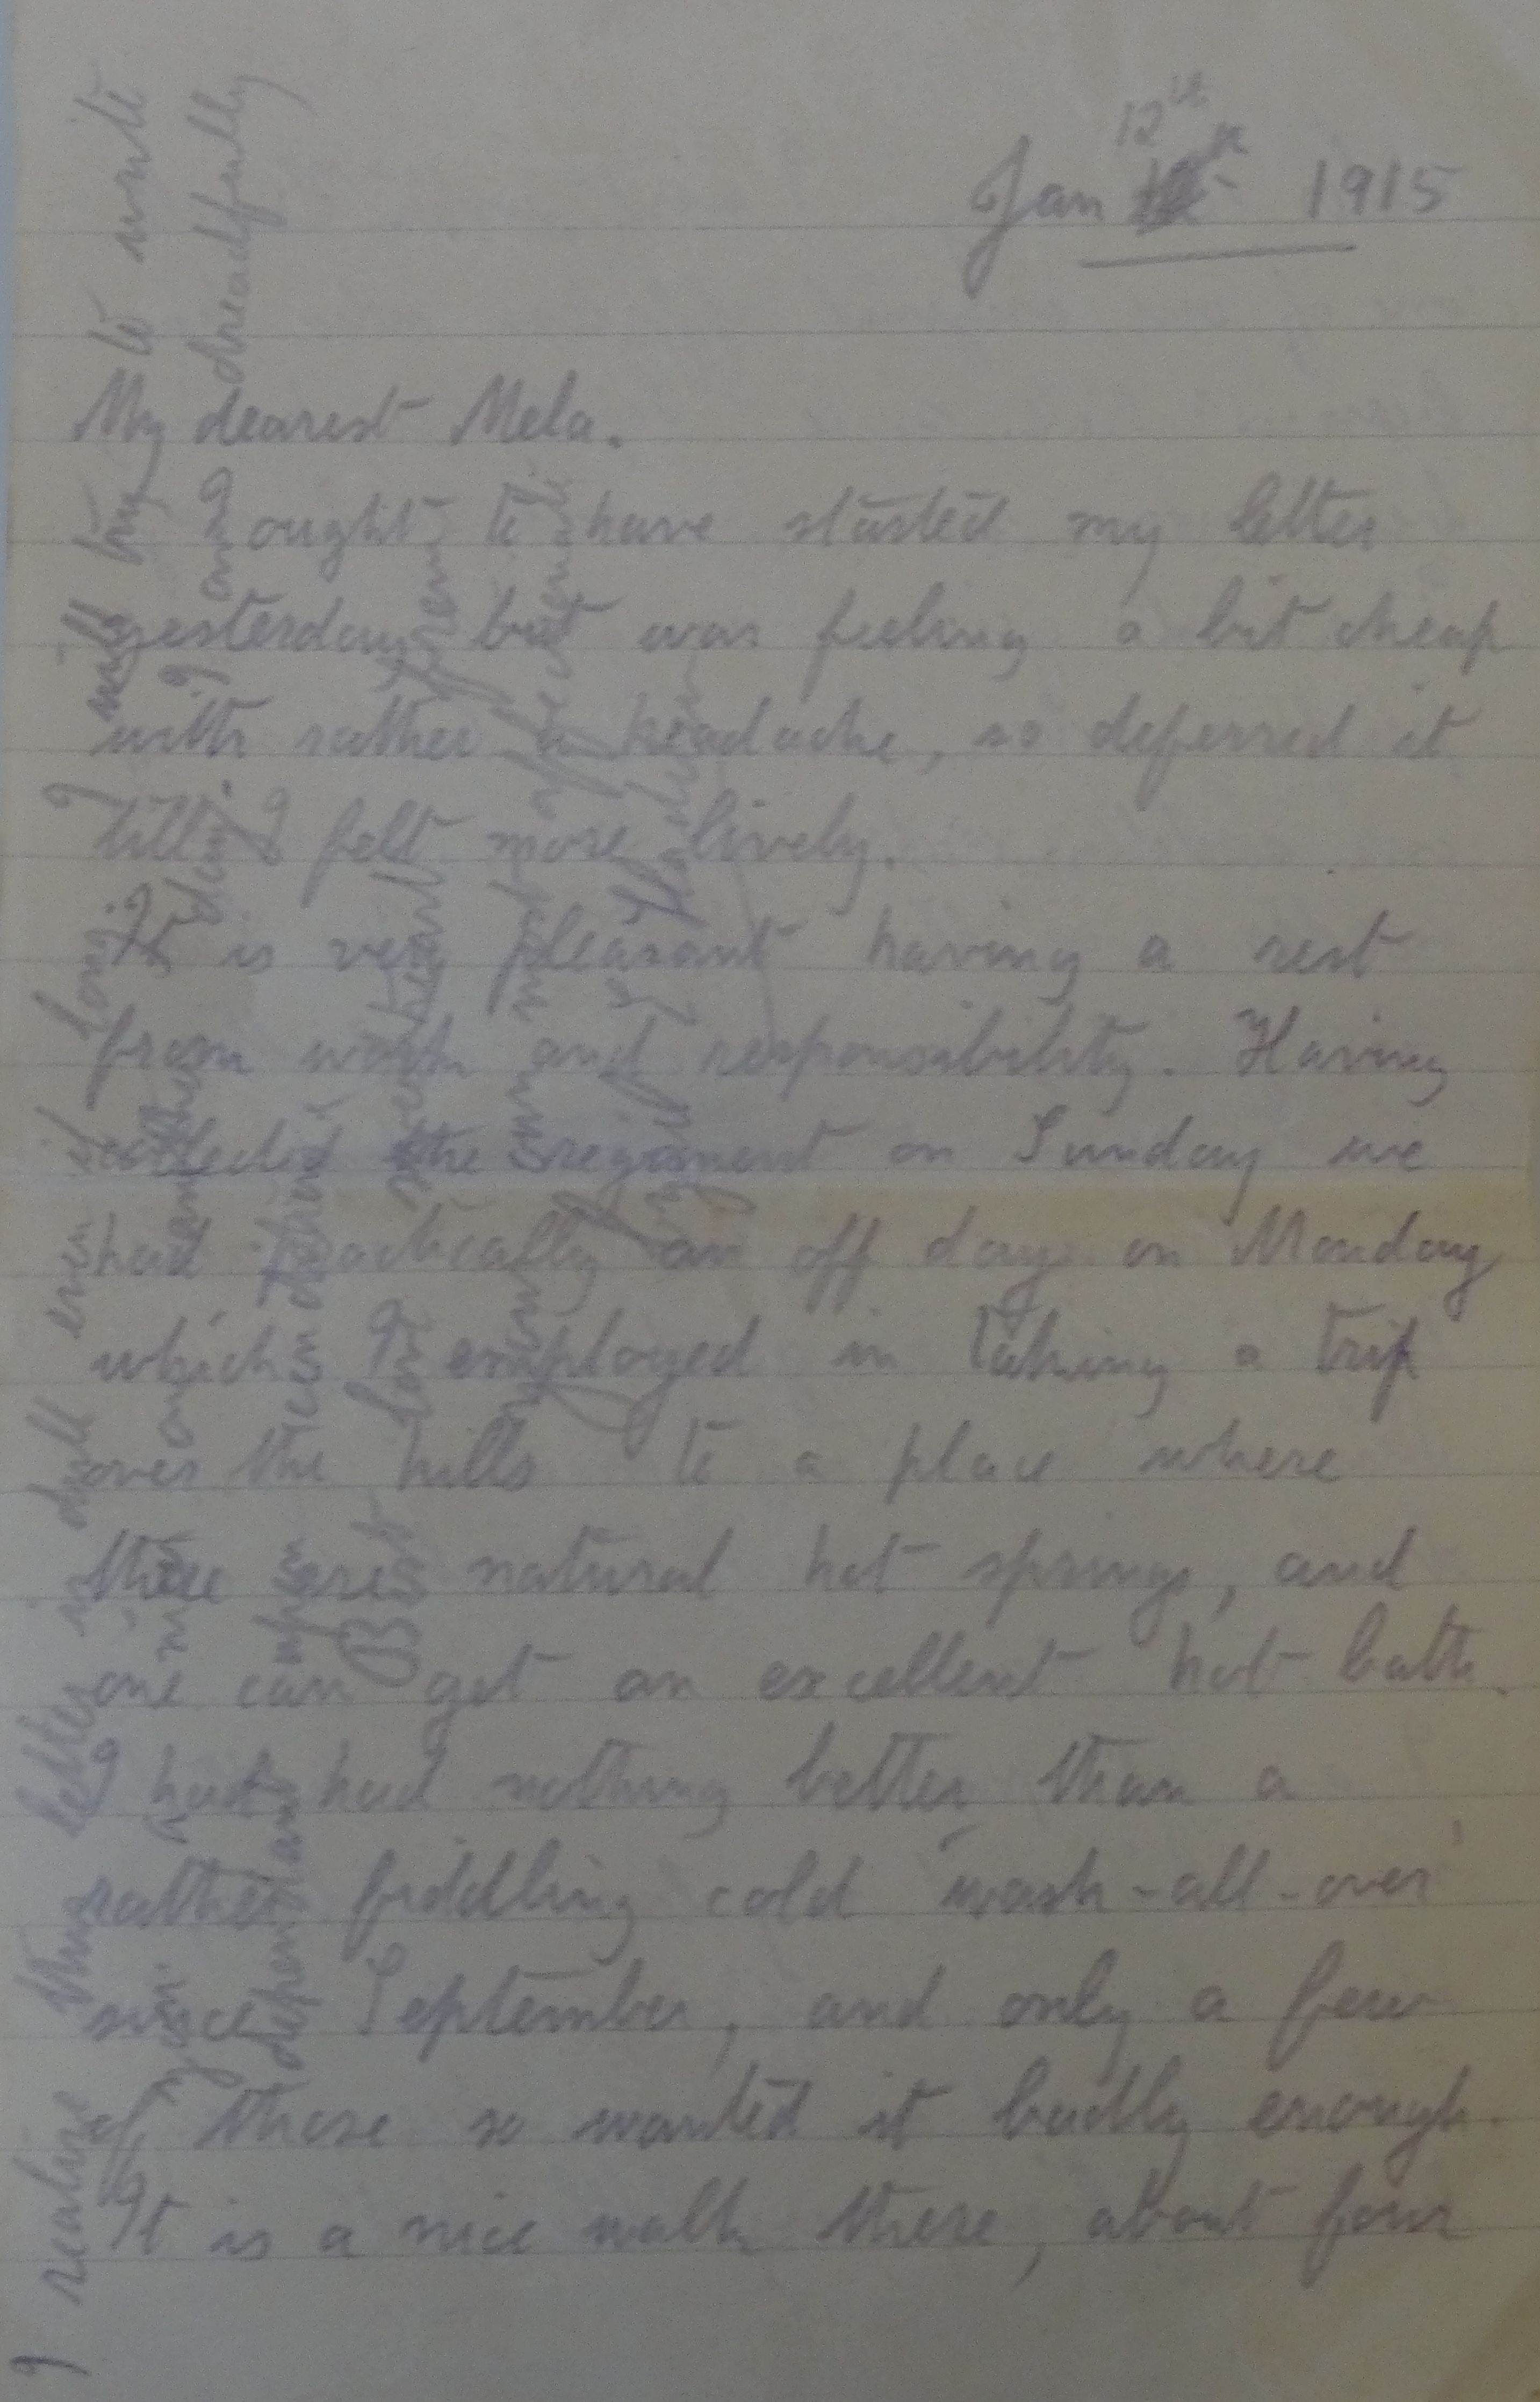 Jan 12th 1915
My dearest Mela.
I ought to have started my letter
yesterday but was feeling a bit cheap
with rather a headache, so deferred it
till I felt more lively.
It is very pleasant having a rest
from work and responsibility. Having
the regiment on Sunday we
had practically an off day on Monday
which I employed in taking a trip
over the hills to a place where
there are natural hot springs, and
one can get an excellent hot bath.
I had had nothing better than a
rather fiddling cold 'wash-all-over'
since September, and only a few
of those so wanted it badly enough.
It is a nice walk there, about four
I realise this letter is dull even if long. I will try to write
you a nice one another day. I am dreadfully
dependant upon
Best love sweetheart from
your own most affecte